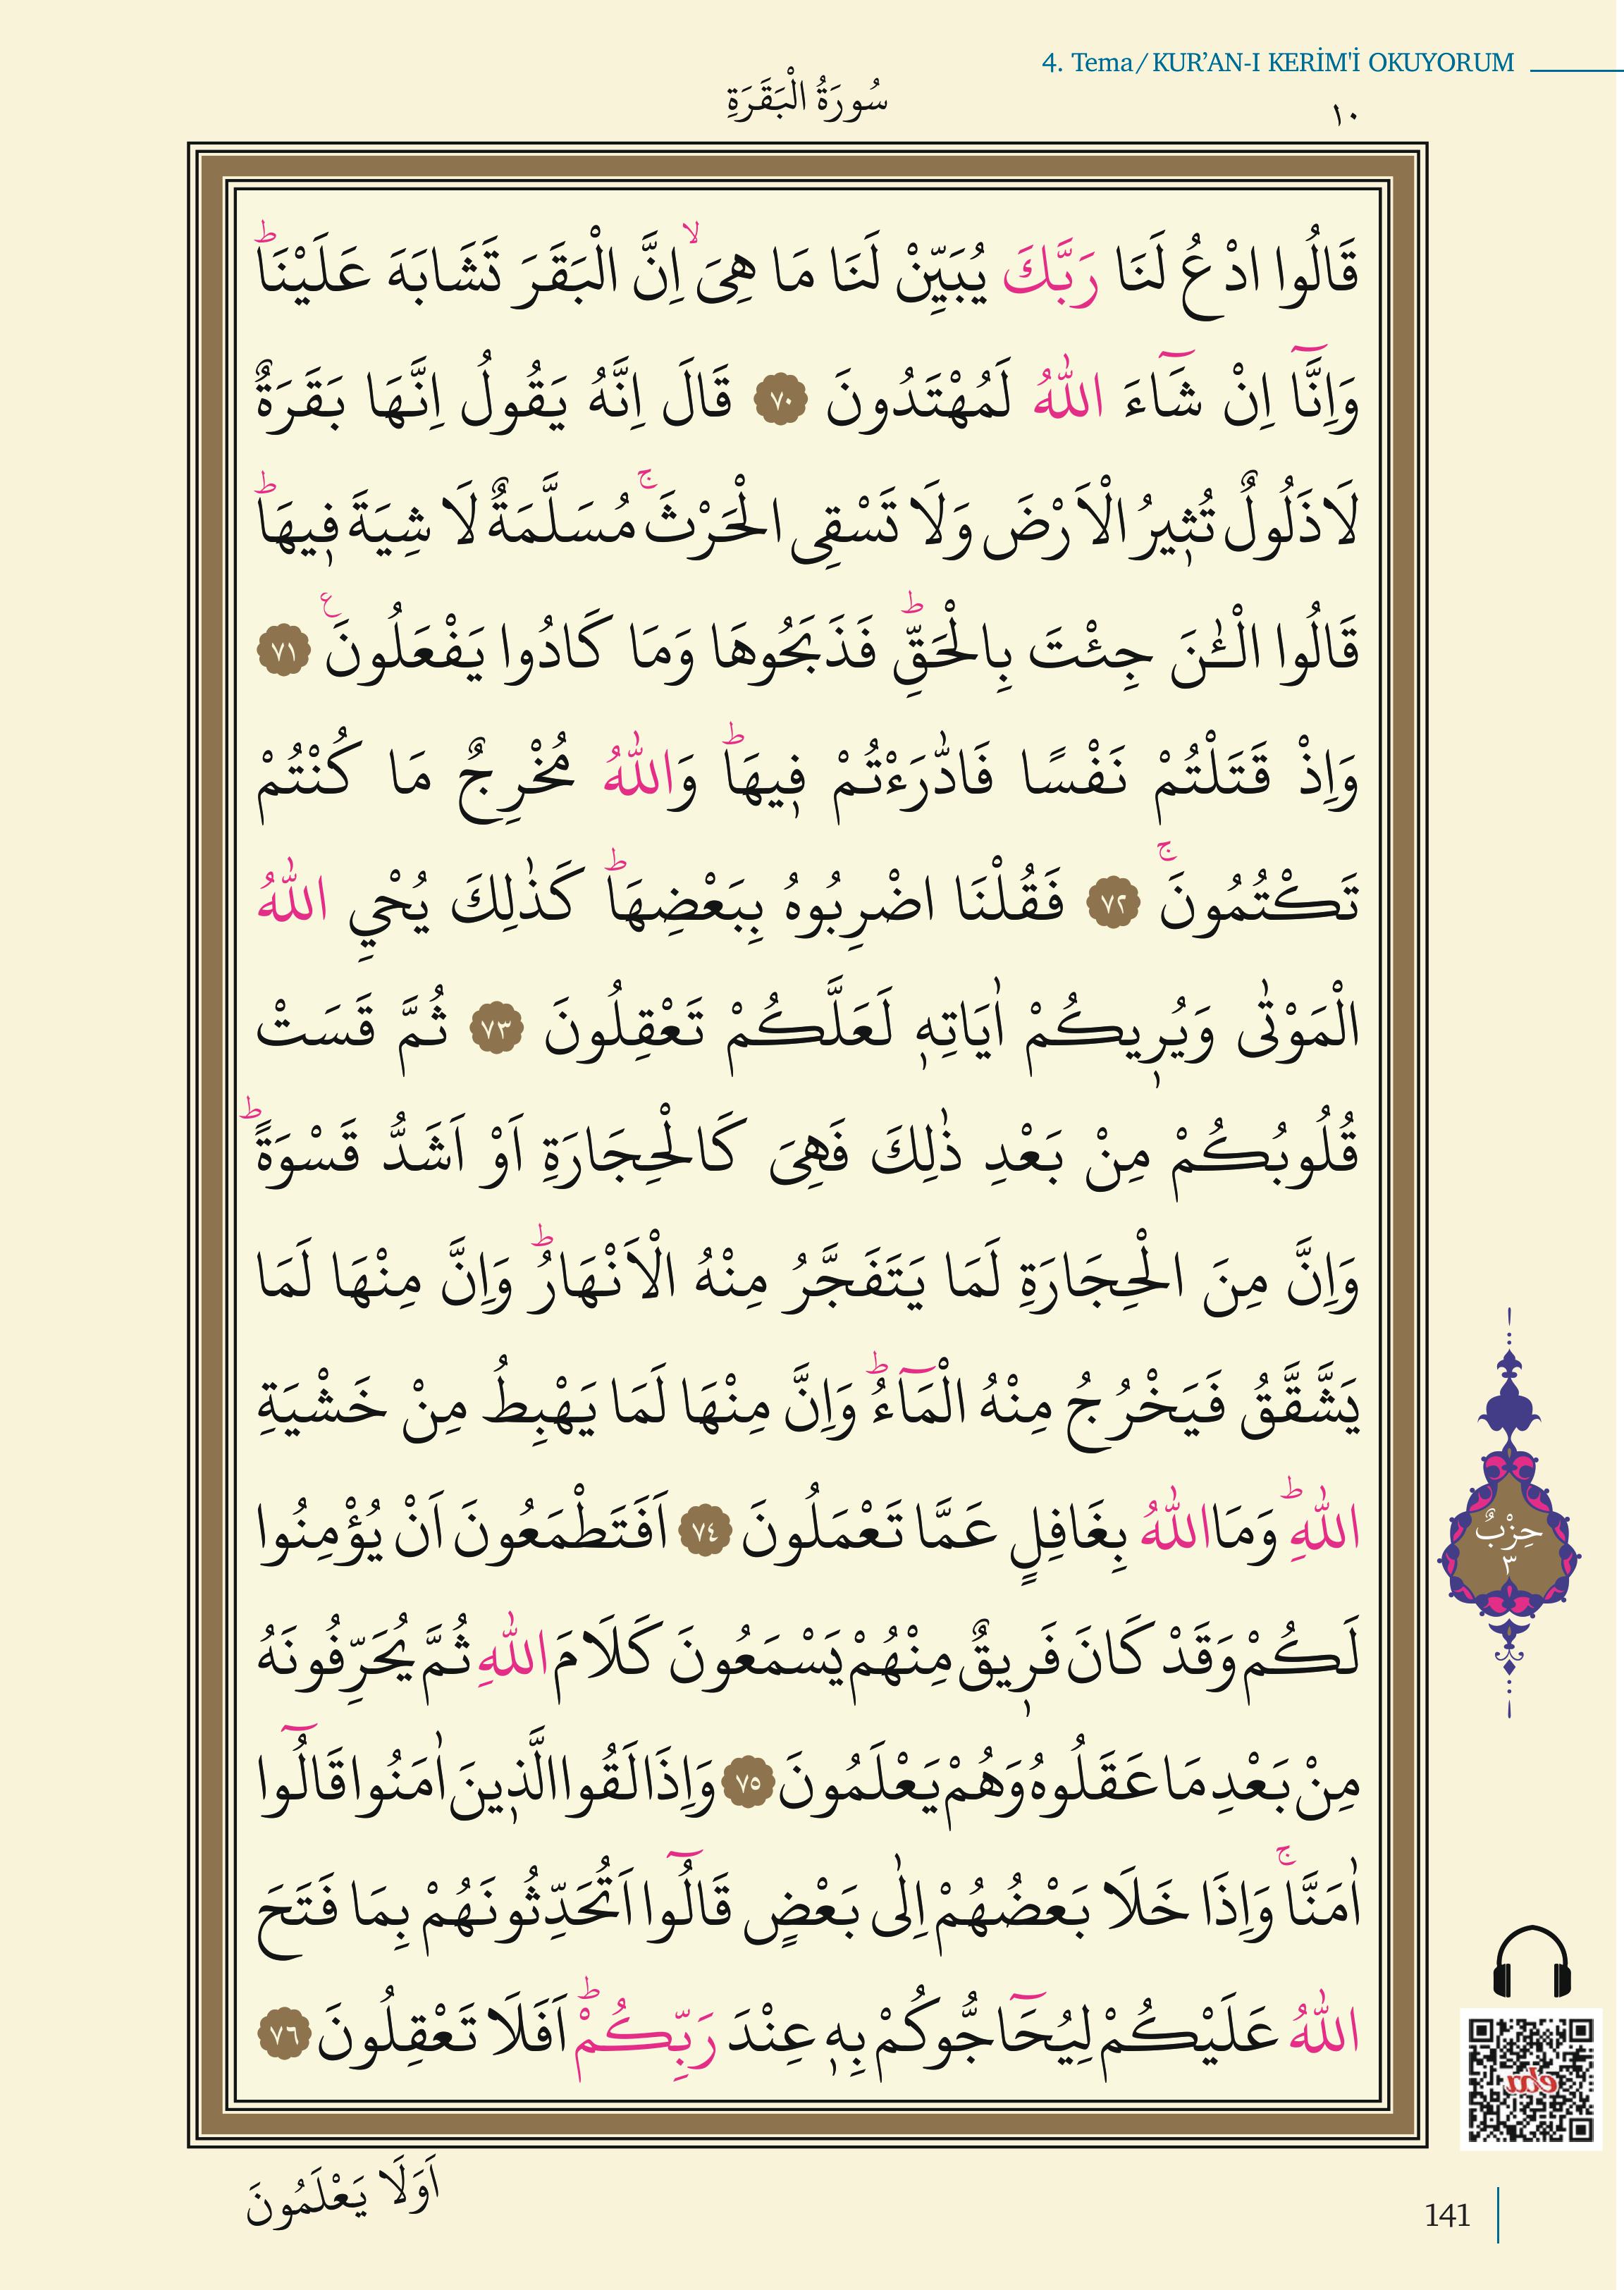 4. Tema/ KUR’AN-I KERİM'İ OKUYORUM
سُورَةُ الْبَقَرَةِ
١٠
قَالُوا ادْعُ لَنَا رَبَّكَ يُبَيِّنْ لَنَا مَا هِىَۙ اِنَّ الْبَقَرَ تَشَابَهَ عَلَيْنَاۜ
وَاِنَّٓا اِنْ شَٓاءَ اللّٰهُ لَمُهْتَدُونَ ﴿٧٠﴾ قَالَ اِنَّهُ يَقُولُ اِنَّهَا بَقَرَةٌ
لَا ذَلُولٌ تُثٖيرُ الْاَرْضَ وَلَا تَسْقِى الْحَرْثَۚ مُسَلَّمَةٌ لَا شِيَةَ فٖيهَاۜ
قَالُوا الْـٰٔنَ جِئْتَ بِالْحَقِّۜ فَذَبَحُوهَا وَمَا كَادُوا يَفْعَلُونَ ع ﴿٧١﴾
وَاِذْ قَتَلْتُمْ نَفْسًا فَادّٰرَءْتُمْ فٖيهَاۜ وَاللّٰهُ مُخْرِجٌ مَا كُنْتُمْ
تَكْتُمُونَۚ ﴿٧٢﴾ فَقُلْنَا اضْرِبُوهُ بِبَعْضِهَاۜ كَذٰلِكَ يُحْيِ اللّٰهُ
الْمَوْتٰى وَيُرٖيكُمْ اٰيَاتِهٖ لَعَلَّكُمْ تَعْقِلُونَ ﴿٧٣﴾ ثُمَّ قَسَتْ
قُلُوبُكُمْ مِنْ بَعْدِ ذٰلِكَ فَهِىَ كَالْحِجَارَةِ اَوْ اَشَدُّ قَسْوَةًۜ
وَاِنَّ مِنَ الْحِجَارَةِ لَمَا يَتَفَجَّرُ مِنْهُ الْاَنْهَارُۜ وَاِنَّ مِنْهَا لَمَا
يَشَّقَّقُ فَيَخْرُجُ مِنْهُ الْمَٓاءُۜ وَاِنَّ مِنْهَا لَمَا يَهْبِطُ مِنْ خَشْيَةِ
اللّٰهِۜ وَمَا اللّٰهُ بِغَافِلٍ عَمَّا تَعْمَلُونَ ﴿٧٤﴾ اَفَتَطْمَعُونَ اَنْ يُؤْمِنُوا
لَكُمْ وَقَدْ كَانَ فَرٖيقٌ مِنْهُمْ يَسْمَعُونَ كَلَامَ اللّٰهِ ثُمَّ يُحَرِّفُونَهُ
مِنْ بَعْدِ مَا عَقَلُوهُ وَهُمْ يَعْلَمُونَ ﴿٧٥﴾ وَاِذَا لَقُوا الَّذٖينَ اٰمَنُوا قَالُٓوا
اٰمَنَّاۚ وَاِذَا خَلَا بَعْضُهُمْ اِلٰى بَعْضٍ قَالُٓوا اَتُحَدِّثُونَهُمْ بِمَا فَتَحَ
اللّٰهُ عَلَيْكُمْ لِيُحَٓاجُّوكُمْ بِهٖ عِنْدَ رَبِّكُمْۜ اَفَلَا تَعْقِلُونَ ﴿٧٦﴾
حِزْبٌ
٣
eba
اَوَلَا يَعْلَمُونَ
141